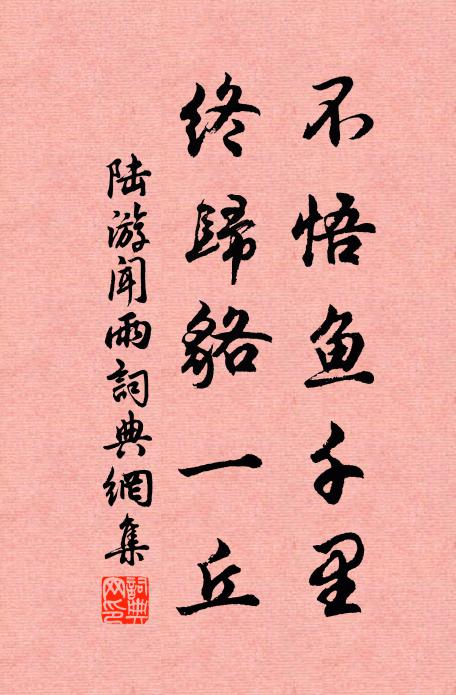 不悟鱼千里
终归貉一丘
陆游闻雨词典网集
词典网印